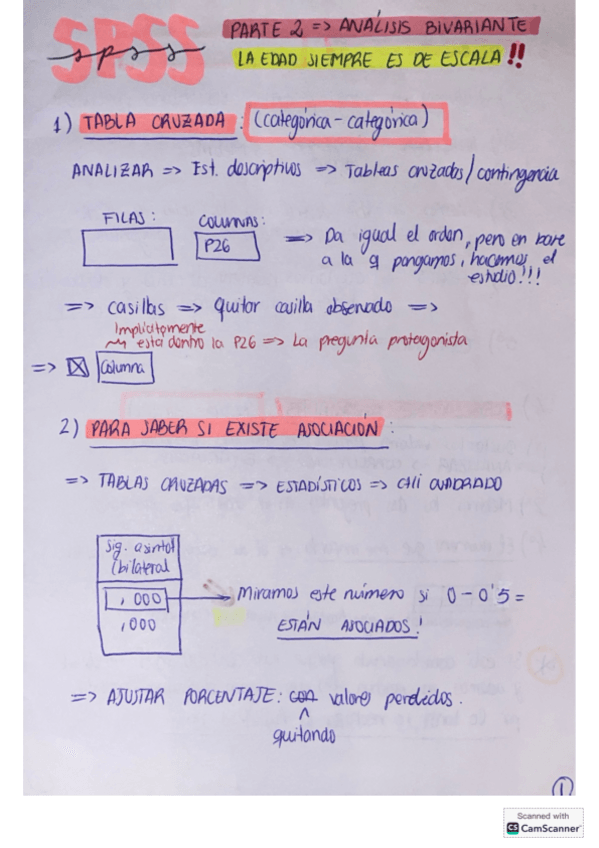 SPSS
spss
PARTE 2 => ANÁLISIS BIVARIANTE
LA EDAD SIEMPRE ES DE ESCALA!!
1) TABLA CRUZADA: (categórica - categórica)
ANALIZAR => Est. descriptivos => Tablas cruzadas/contingencia
FILAS: COLUMNAS:
P26 => Da igual el orden, pero en base
a la q pongamos, hacemos el
estudio!!!
=> casillas => Quitar casilla observado =>
Implícitamente
está dentro la P26 => La pregunta protagonista
=> ☒ Columna
2) PARA SABER SI EXISTE ASOCIACIÓN:
=> TABLAS CRUZADAS => ESTADÍSTICOS => CHI CUADRADO
Sig. asintot
(bilateral
,000 → Miramos este número si 0 - 0'5 =
,000 ESTÁN ASOCIADOS!
=> AJUSTAR PORCENTAJE: con valores perdidos.
quitando
1
Scanned with
CS CamScanner